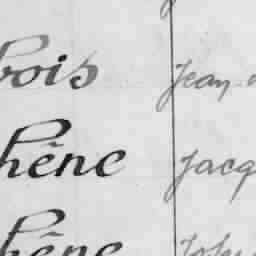 bois Jean
hêne Jacq
hêne